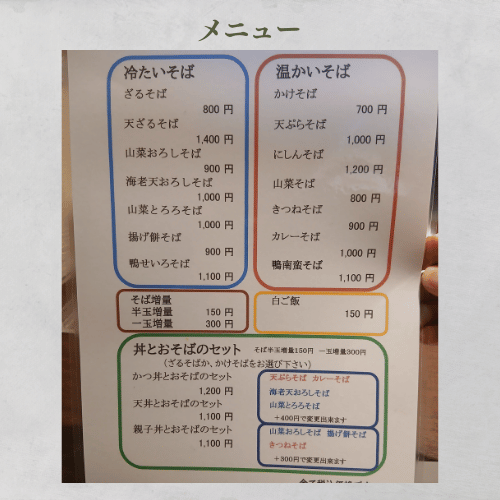 メニュー
冷たいそば
ざるそば
800 円
天ざるそば
1,400 円
山菜おろしそば
900 円
海老天おろしそば
1,000 円
山菜とろろそば
1,000 円
揚げ餅そば
900 円
鴨せいろそば
1,100 円
温かいそば
かけそば
700 円
天ぷらそば
1,000 円
にしんそば
1,200 円
山菜そば
800 円
きつねそば
900 円
カレーそば
1,000 円
鴨南蛮そば
1,100 円
そば増量
半玉増量 150 円
一玉増量 300 円
白ご飯
150 円
丼とおそばのセット そば半玉増量150円 一玉増量300円
（ざるそばか、かけそばをお選び下さい）
かつ丼とおそばのセット
1,200 円
天丼とおそばのセット
1,100 円
親子丼とおそばのセット
1,100 円
天ぷらそば カレーそば
海老天おろしそば
山菜とろろそば
+400円で変更出来ます
山菜おろしそば 揚げ餅そば
きつねそば
+300円で変更出来ます